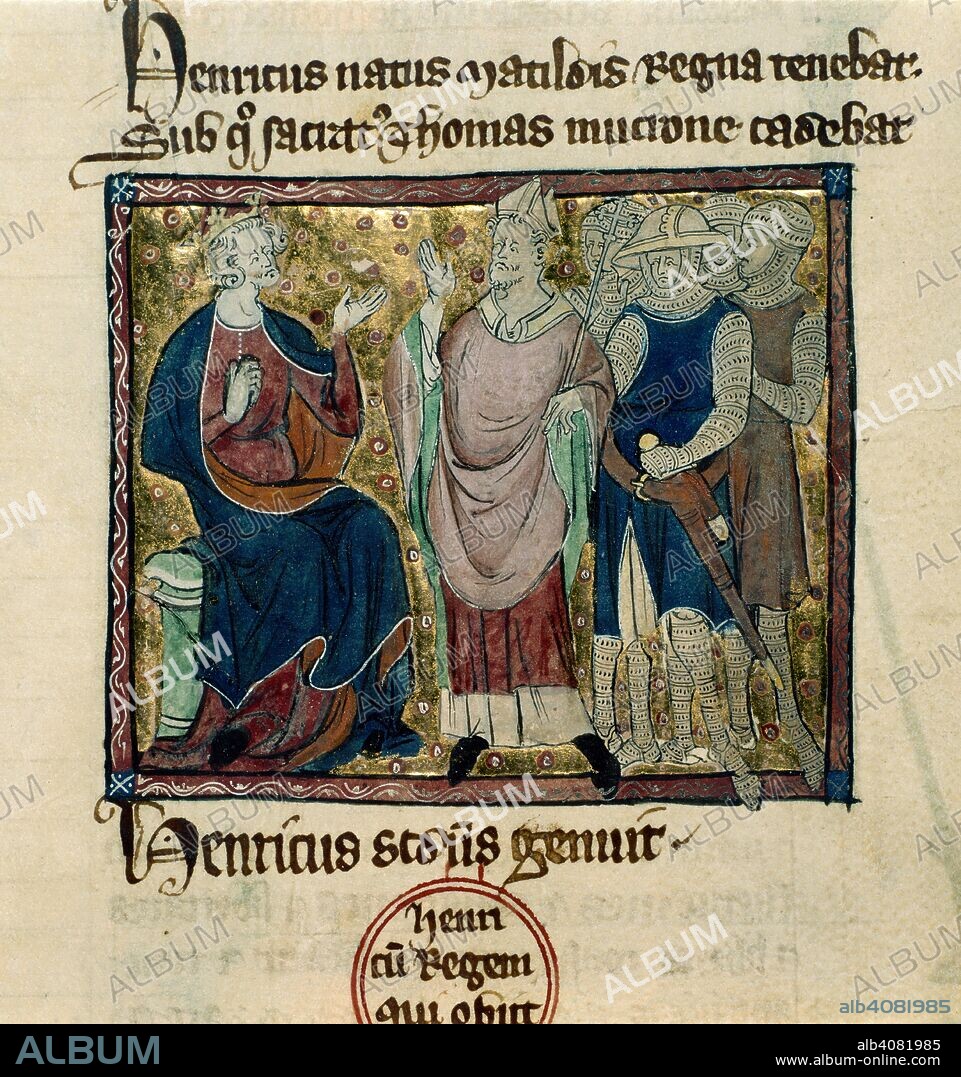 Henricus natus Matildis Regna tenebat.
Sub qo sacrat9 Thomas mucrone cadebat
Henricus scdus genuit
henri
cū Regem
qui obiit
ALBUM
alb4081985
ALBUM
alb4081985
www.album-online.com